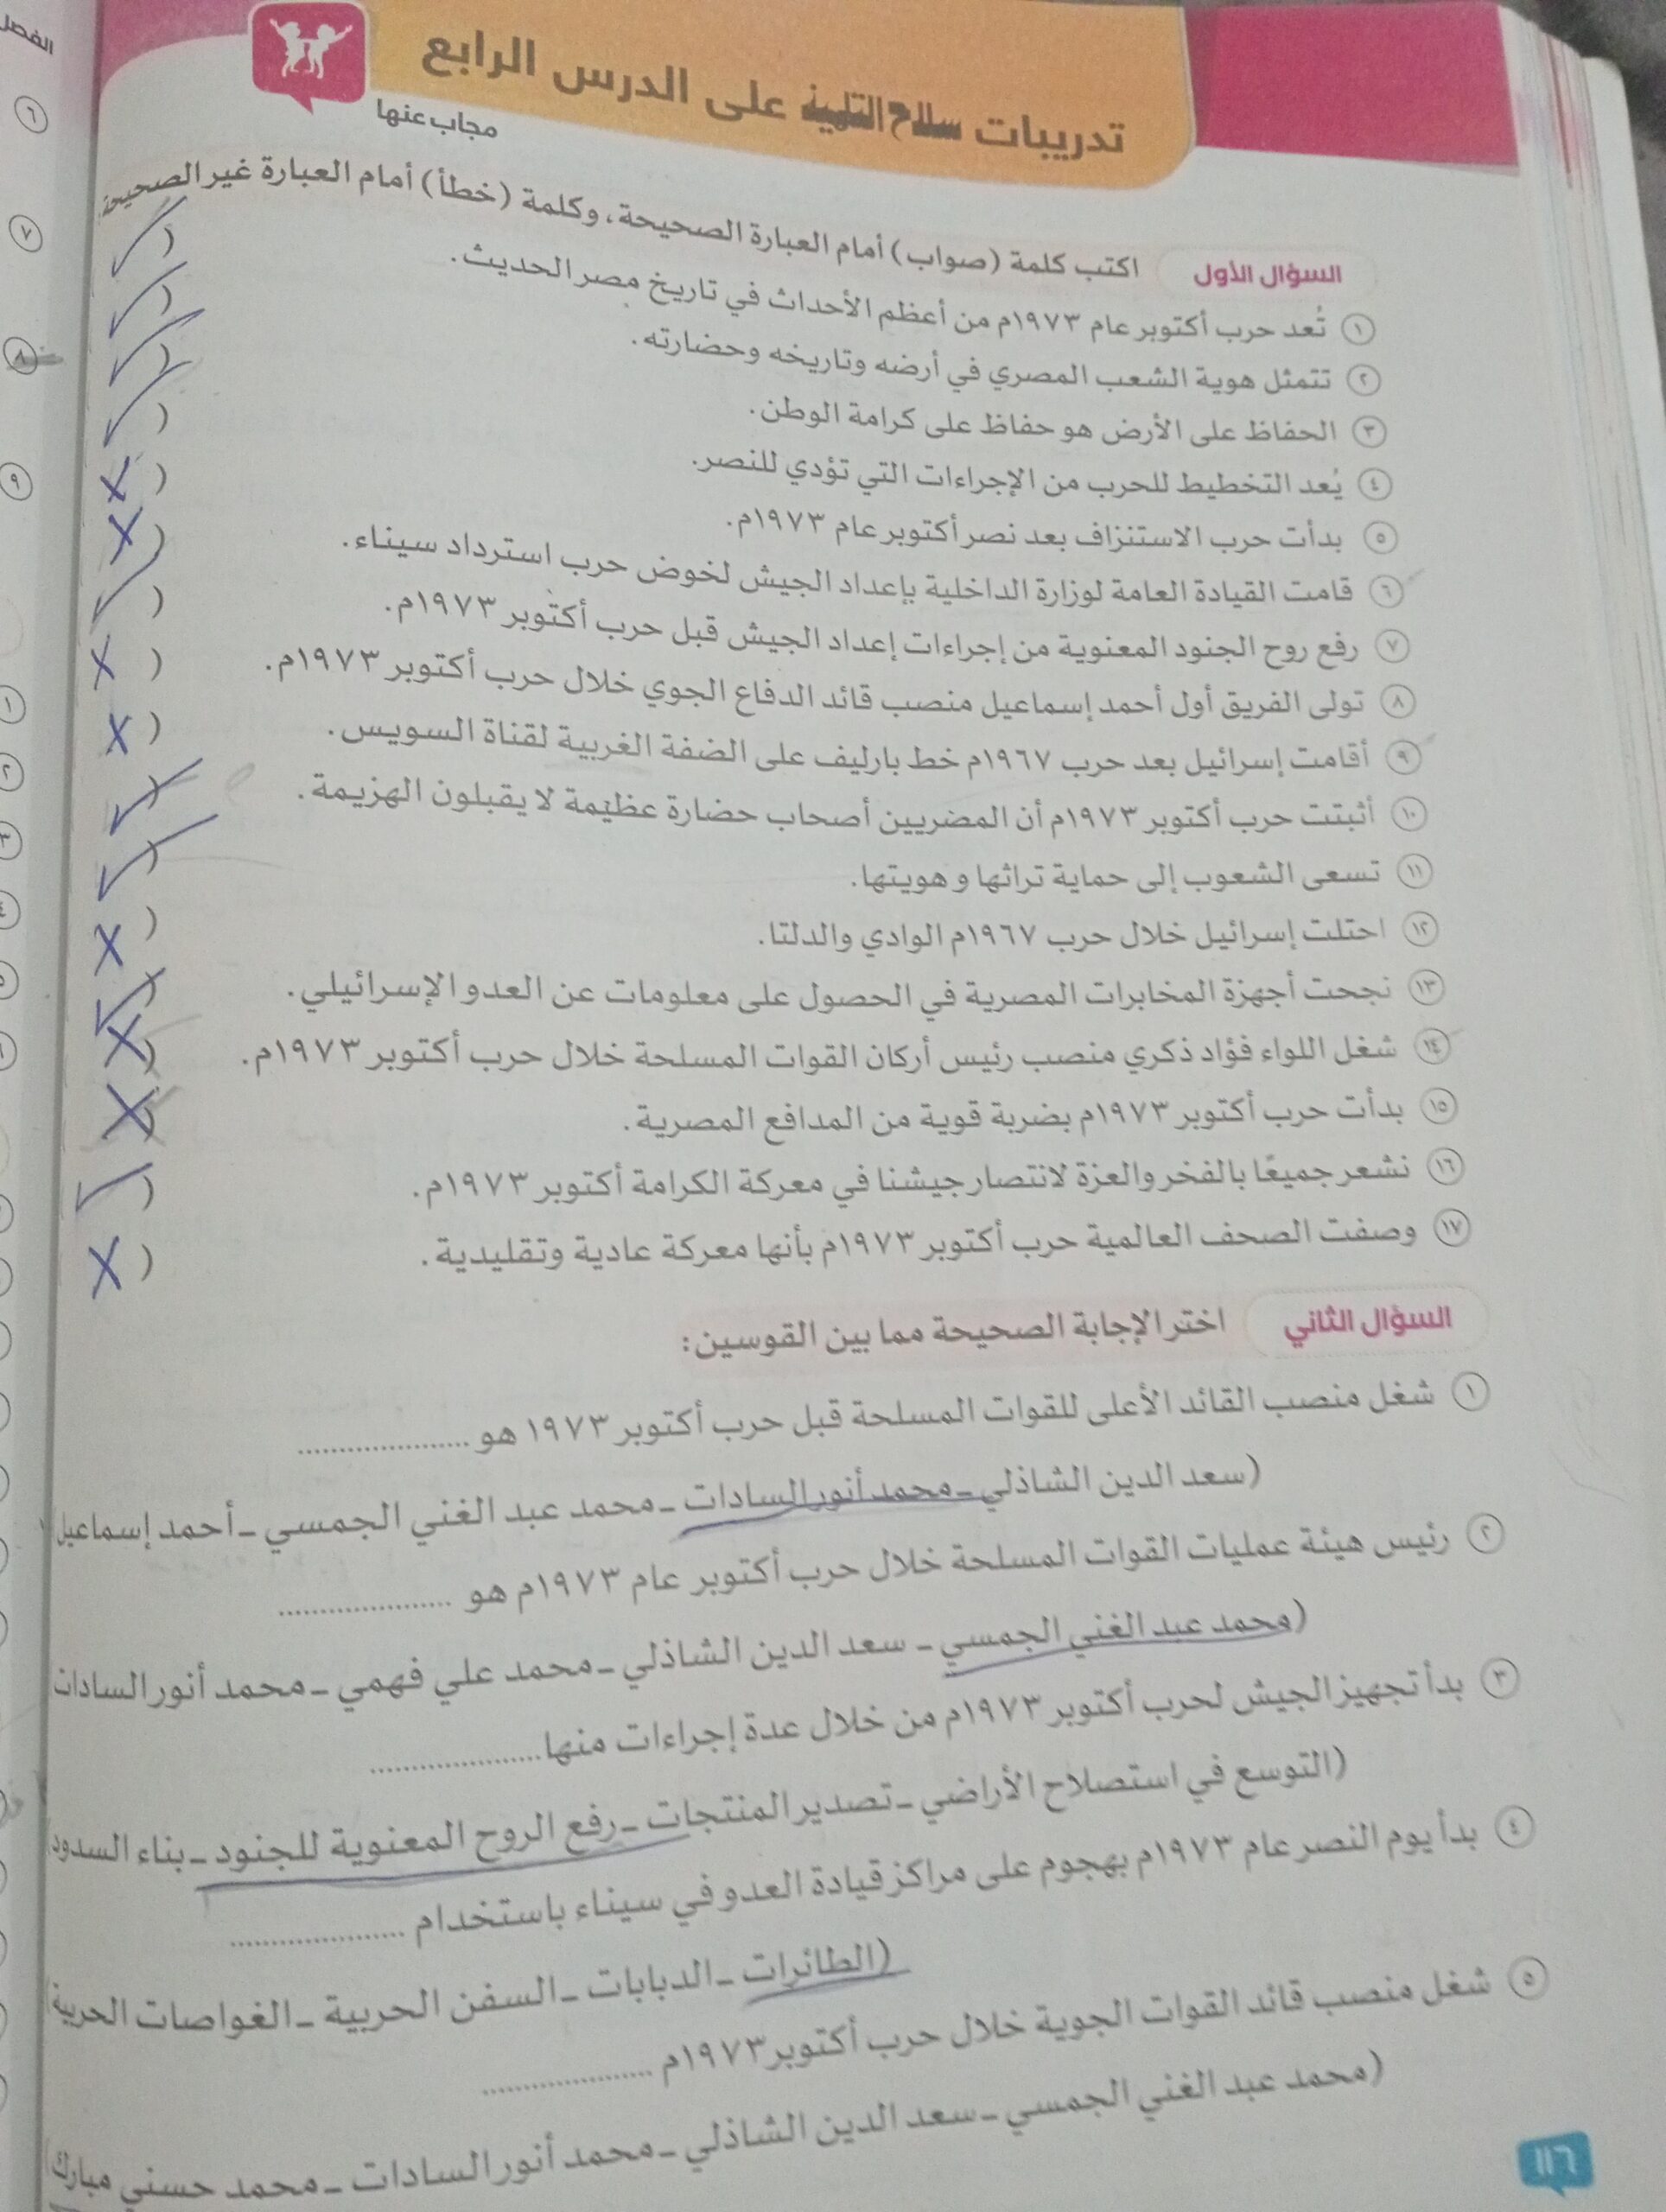 تدريبات سلاح التلميذ على الدرس الرابع
مجاب عنها
السؤال الأول اكتب كلمة (صواب) أمام العبارة الصحيحة، وكلمة (خطأ) أمام العبارة غير الصحيحة
١ تُعد حرب أكتوبر عام ١٩٧٣م من أعظم الأحداث في تاريخ مصر الحديث. ( ✓
٢ تتمثل هوية الشعب المصري في أرضه وتاريخه وحضارته. ( ✓
٣ الحفاظ على الأرض هو حفاظ على كرامة الوطن. ( ✓
٤ يُعد التخطيط للحرب من الإجراءات التي تؤدي للنصر. ( ✓
٥ بدأت حرب الاستنزاف بعد نصر أكتوبر عام ١٩٧٣م. ( X
٦ قامت القيادة العامة لوزارة الداخلية بإعداد الجيش لخوض حرب استرداد سيناء. ( X
٧ رفع روح الجنود المعنوية من إجراءات إعداد الجيش قبل حرب أكتوبر ١٩٧٣م. ( ✓
٨ تولى الفريق أول أحمد إسماعيل منصب قائد الدفاع الجوي خلال حرب أكتوبر ١٩٧٣م. ( X
٩ أقامت إسرائيل بعد حرب ١٩٦٧م خط بارليف على الضفة الغربية لقناة السويس. ( X
١٠ أثبتت حرب أكتوبر ١٩٧٣م أن المصريين أصحاب حضارة عظيمة لا يقبلون الهزيمة. ( ✓
١١ تسعى الشعوب إلى حماية تراثها وهويتها. ( ✓
١٢ احتلت إسرائيل خلال حرب ١٩٦٧م الوادي والدلتا. ( X
١٣ نجحت أجهزة المخابرات المصرية في الحصول على معلومات عن العدو الإسرائيلي. ( ✓
١٤ شغل اللواء فؤاد ذكري منصب رئيس أركان القوات المسلحة خلال حرب أكتوبر ١٩٧٣م. ( X
١٥ بدأت حرب أكتوبر ١٩٧٣م بضربة قوية من المدافع المصرية. ( X
١٦ نشعر جميعًا بالفخر والعزة لانتصار جيشنا في معركة الكرامة أكتوبر ١٩٧٣م. ( ✓
١٧ وصفت الصحف العالمية حرب أكتوبر ١٩٧٣م بأنها معركة عادية وتقليدية. ( X
السؤال الثاني اختر الإجابة الصحيحة مما بين القوسين:
١ شغل منصب القائد الأعلى للقوات المسلحة قبل حرب أكتوبر ١٩٧٣ هو ....................
(سعد الدين الشاذلي - محمد أنور السادات - محمد عبد الغني الجمسي - أحمد إسماعيل
٢ رئيس هيئة عمليات القوات المسلحة خلال حرب أكتوبر عام ١٩٧٣م هو ....................
(محمد عبد الغني الجمسي - سعد الدين الشاذلي - محمد علي فهمي - محمد أنور السادات
٣ بدأ تجهيز الجيش لحرب أكتوبر ١٩٧٣م من خلال عدة إجراءات منها ....................
(التوسع في استصلاح الأراضي - تصدير المنتجات - رفع الروح المعنوية للجنود - بناء السدود)
٤ بدأ يوم النصر عام ١٩٧٣م بهجوم على مراكز قيادة العدو في سيناء باستخدام ....................
(الطائرات - الدبابات - السفن الحربية - الغواصات الحربية)
٥ شغل منصب قائد القوات الجوية خلال حرب أكتوبر ١٩٧٣م ....................
(محمد عبد الغني الجمسي - سعد الدين الشاذلي - محمد أنور السادات - محمد حسني مبارك)
١١٦
الفصل
٦
٧
٨
٩